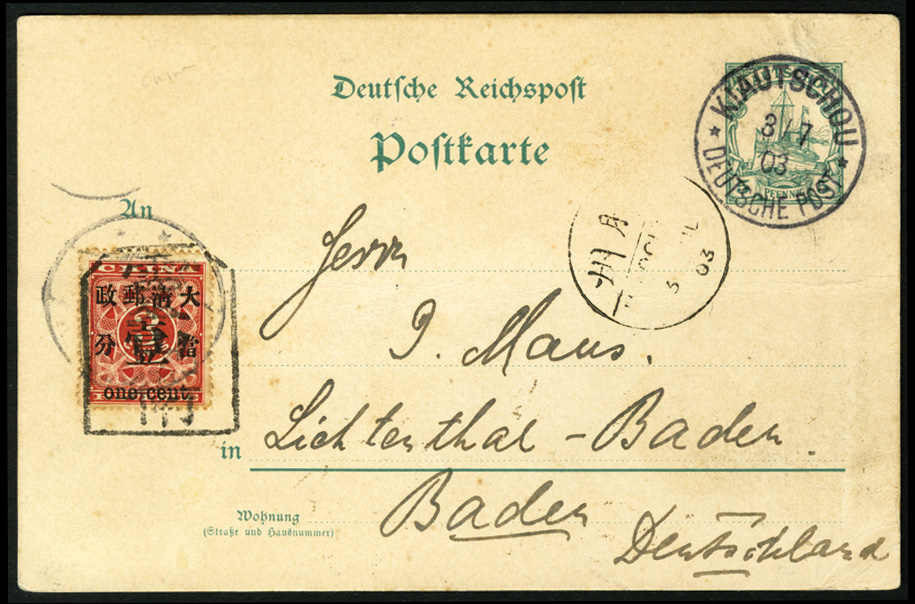 China
Deutsche Reichspost
Postkarte
PFENNIG
KIAUTSCHOU
3/7
03
* DEUTSCHE POST *
An
Herrn
JUL
5
03
CHINA
大清郵政
當壹分
one cent.
J. Maus.
in Lichtenthal - Baden
Baden
Wohnung
(Straße und Hausnummer)
Deutschland